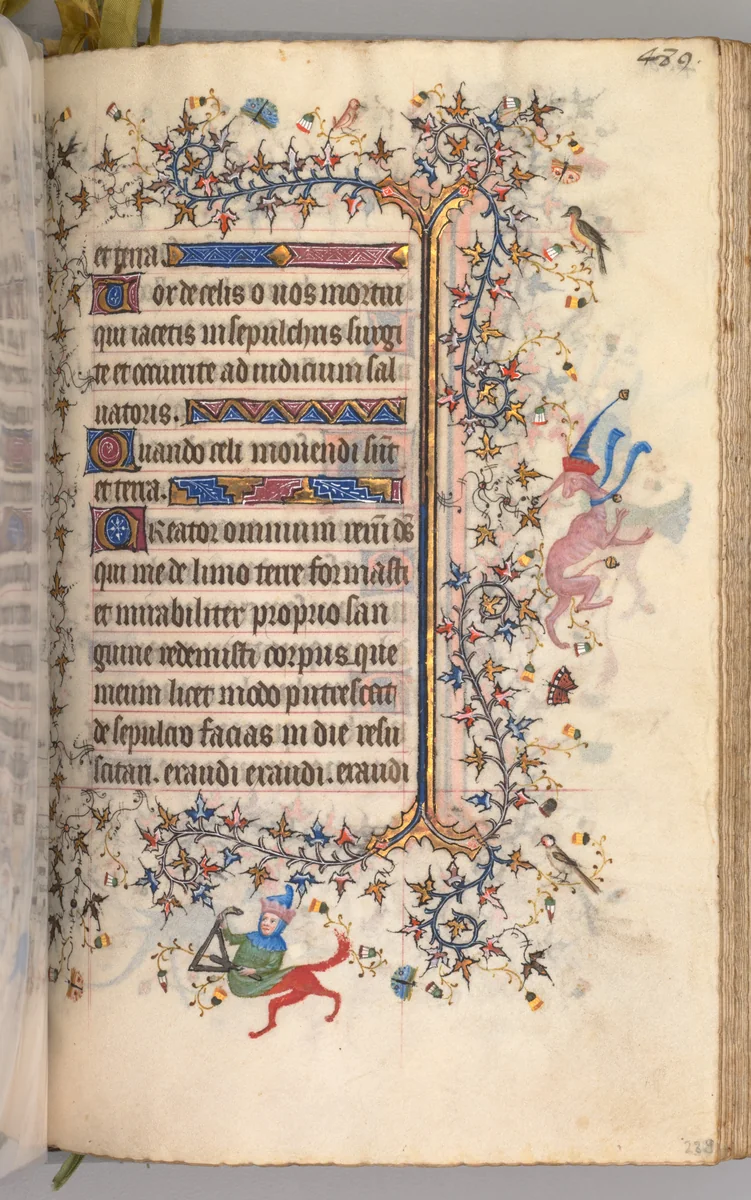 489.
et terra.
Vor de celis o uos mortui
qui iacetis in sepulchris surgi
te et occurrite ad iudicium sal
uatoris.
Quando celi mouendi sūt
et terra.
CReator omnium rerū ds̄
qui me de limo terre formasti
et mirabiliter proprio san
guine redemisti corpus que
meum licet modo putrescat
de sepulcro facias in die resu
scitari. exaudi exaudi. exaudi
239